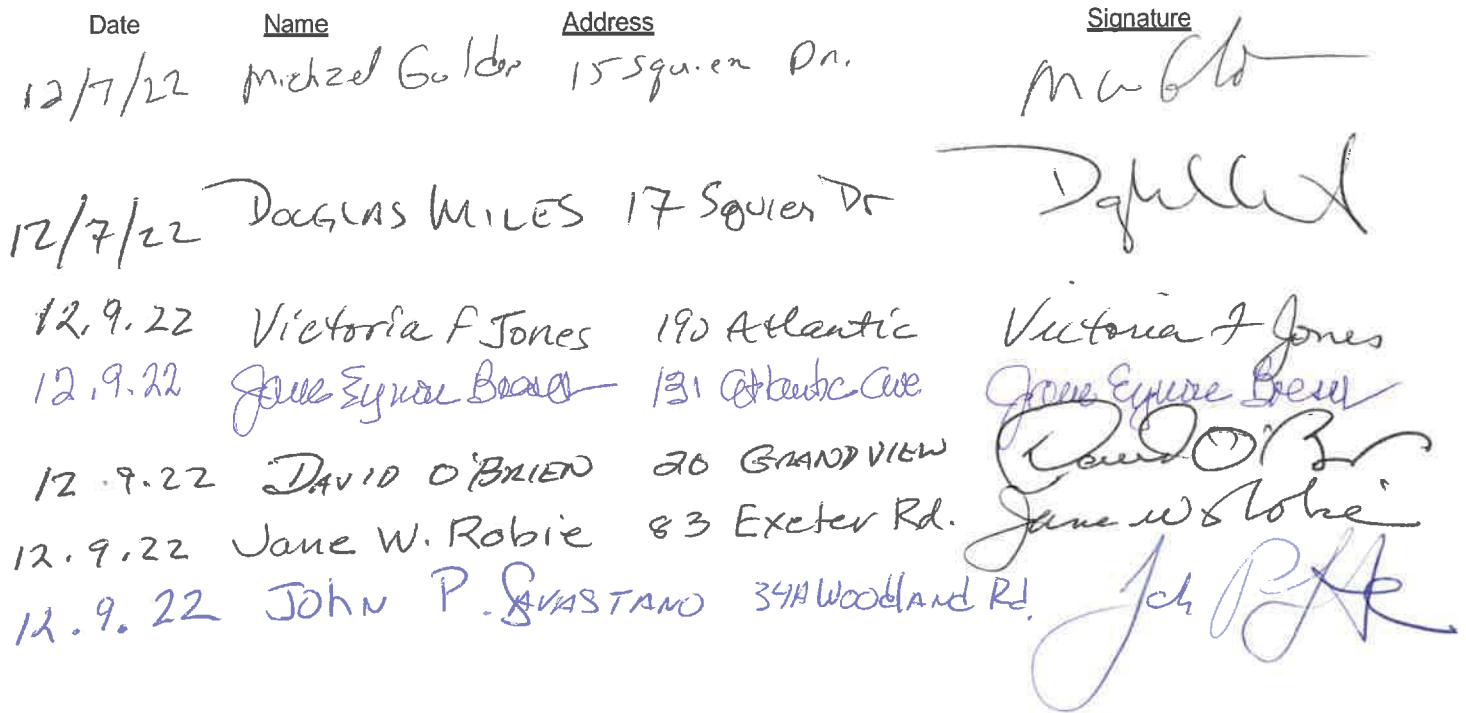 Date Name Address Signature
12/7/22 Michael Golden 15 Squier Dr.
12/7/22 DOUGLAS MILES 17 Squier Dr
12.9.22 Victoria F Jones 190 Atlantic Victoria F Jones
12.9.22 Jane 131 Atlantic Ave Jane
12.9.22 DAVID O'BRIEN 20 GRANDVIEW David O'Br
12.9.22 Jane W. Robie 83 Exeter Rd. Jane W Robie
12.9.22 JOHN P. SAVASTANO 34A WOODLANd Rd. Joh P